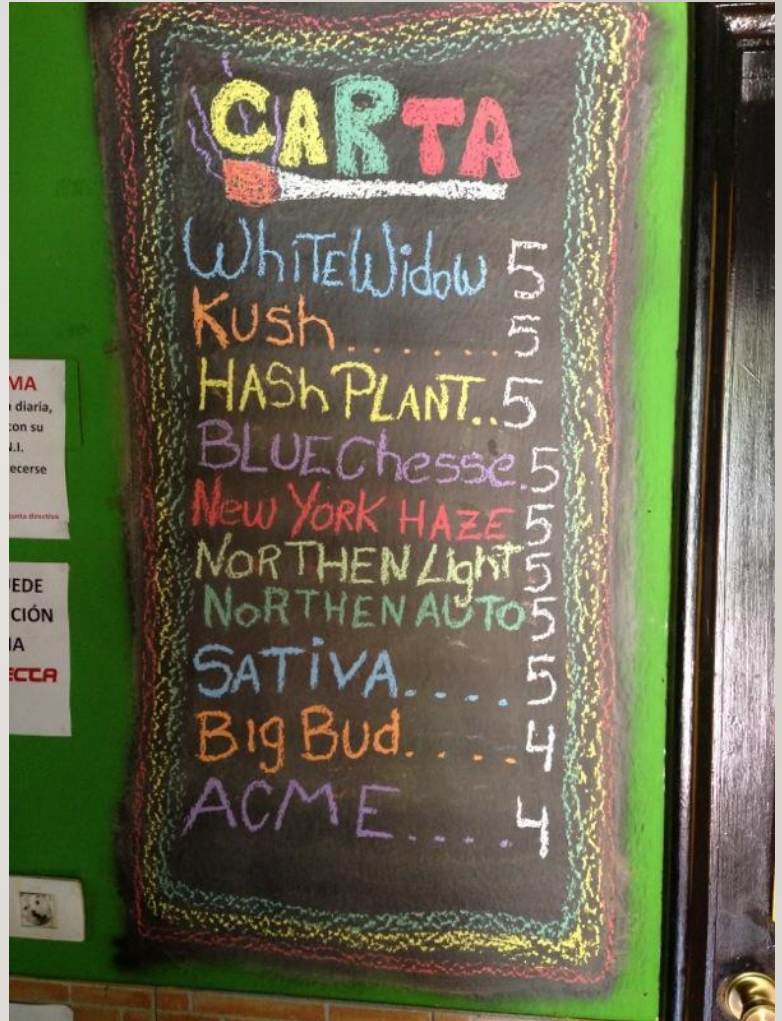 CARTA
WhiTE Widow 5
Kush . . . . . . . 5
HASh PLANT.. 5
BLUE Chesse. 5
New YORK HAZE 5
NORTHEN Light 5
NORTHEN AUTO 5
SATiVA. . . . . 5
Big Bud. . . . . 4
ACME. . . . 4
MA
diaria,
con su
N.I.
ecerse
junta directiva
UEDE
CIÓN
IA
ECTA